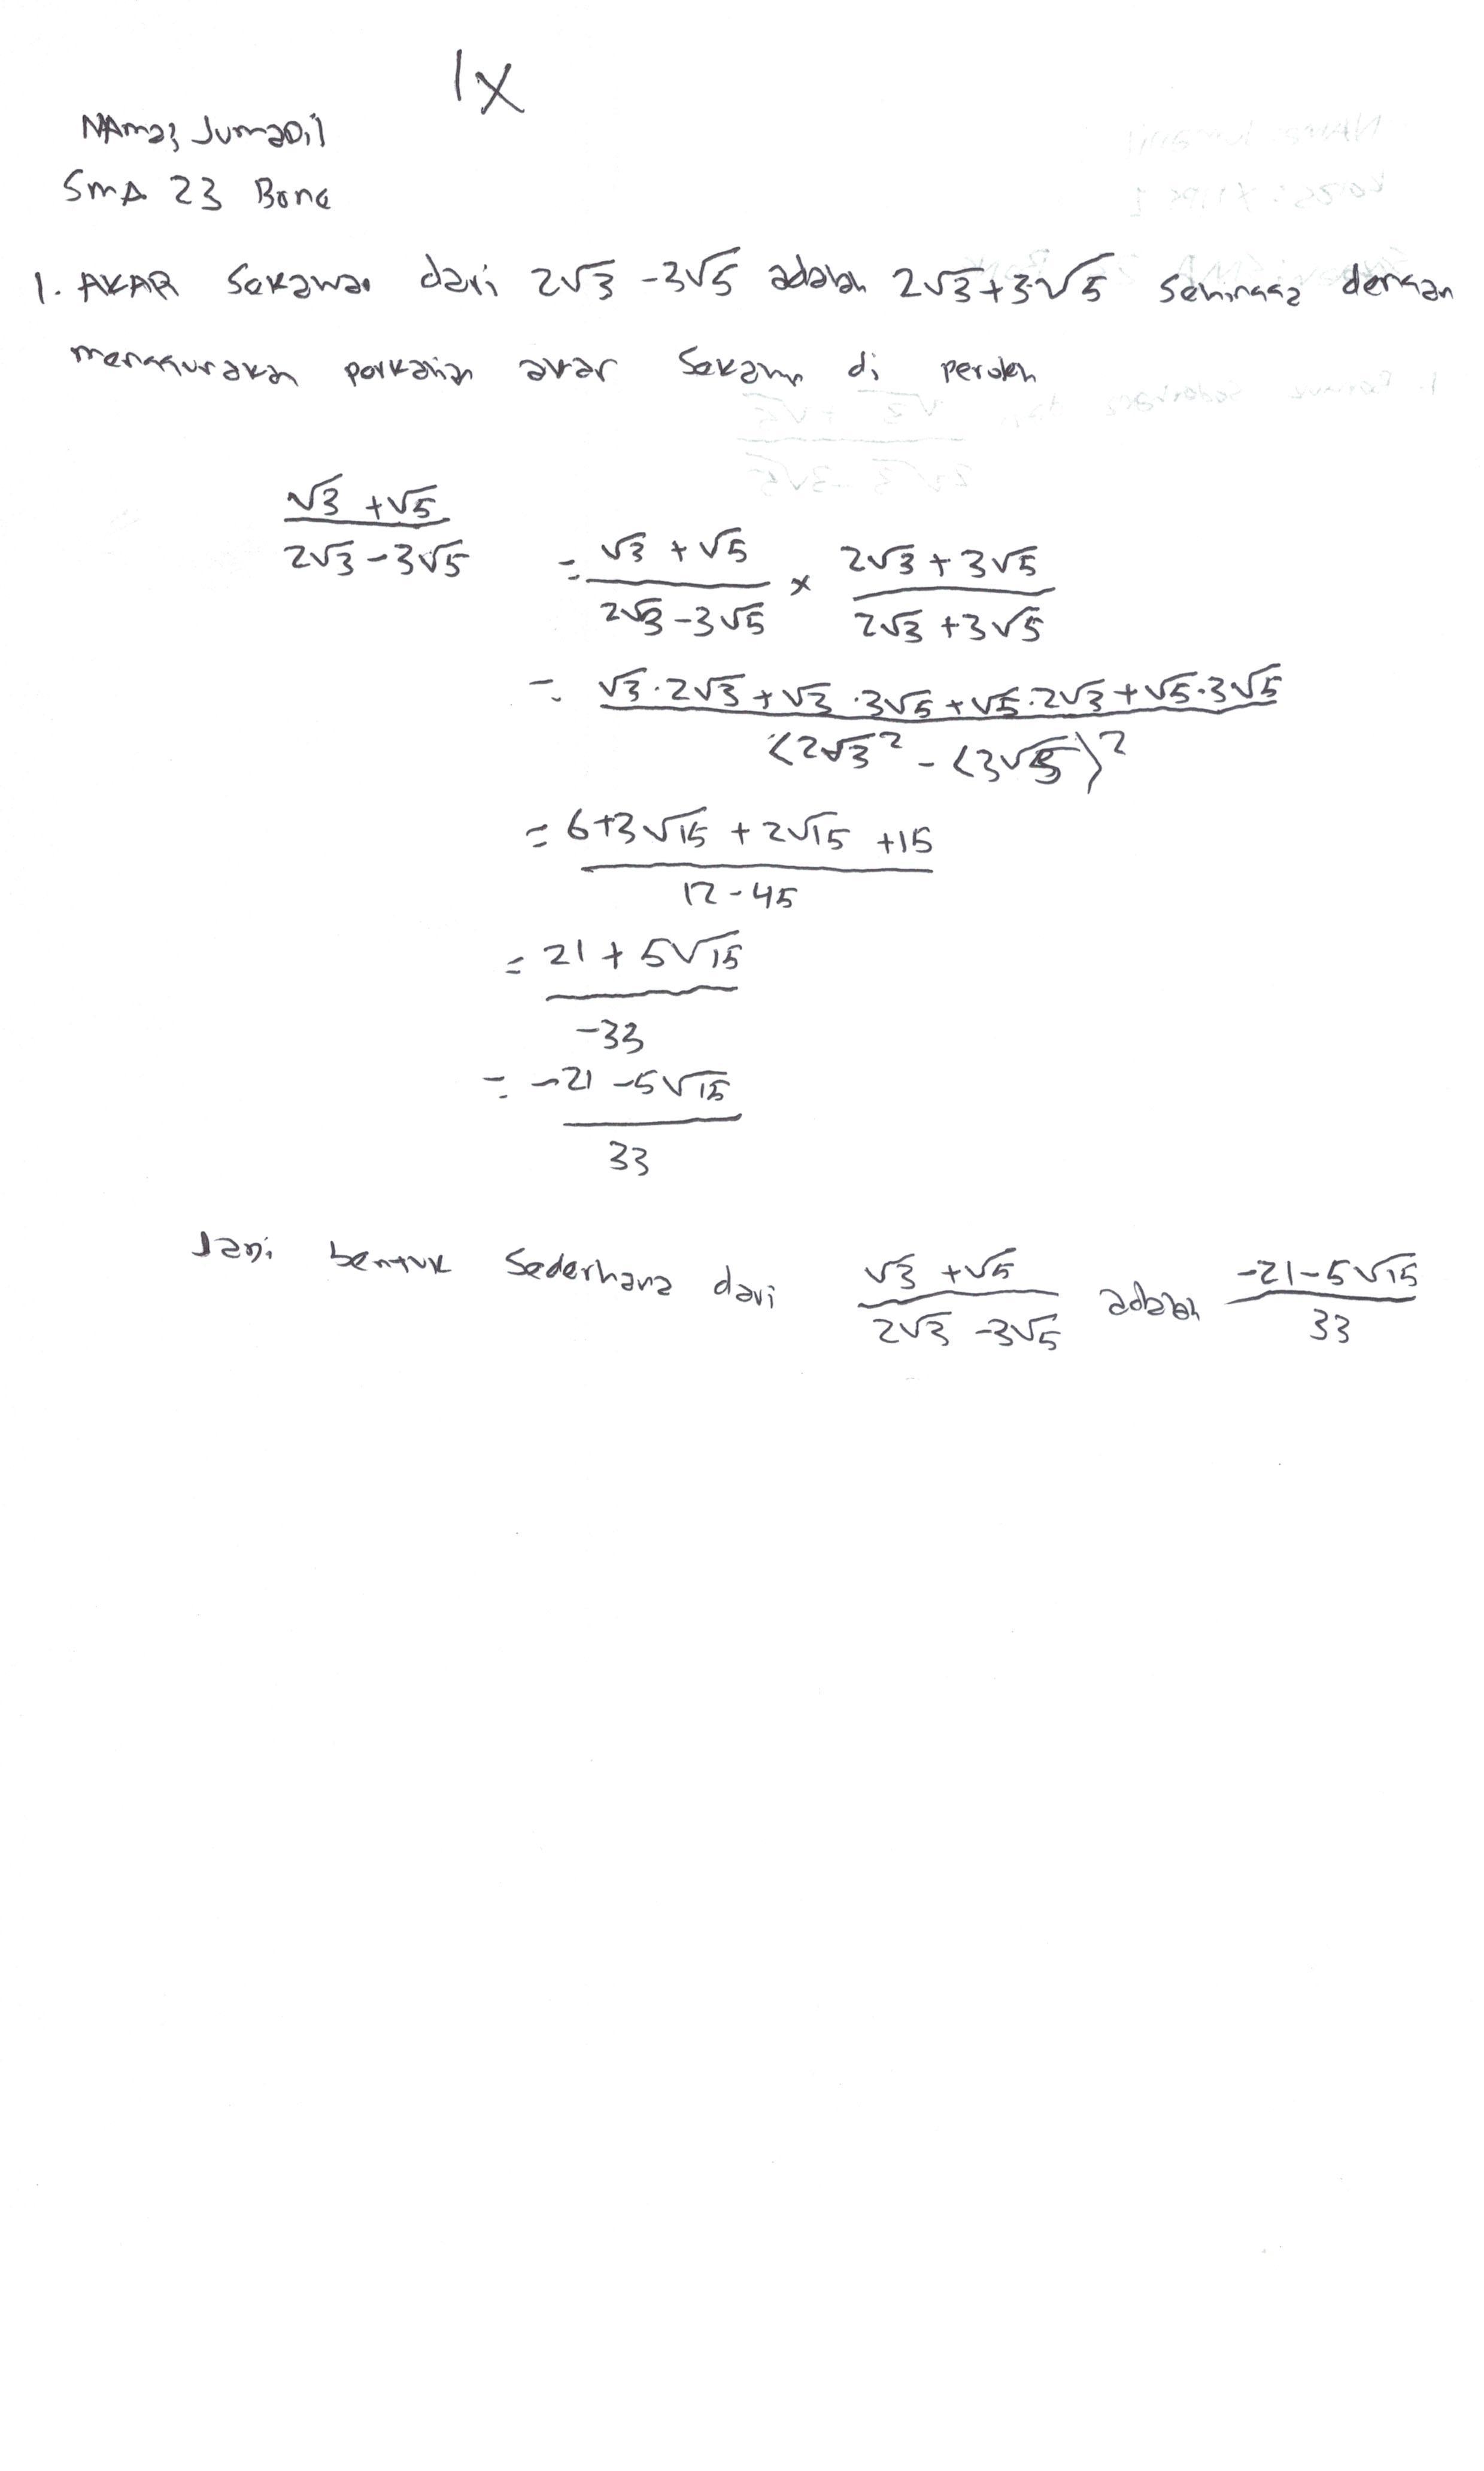 IX
NAma; Jumadil
SmA 23 Bone
1. AKAR Sekawan dari 2√3 - 3√5 adalah 2√3 + 3√5 Sehingga dengan
menggunakan perkalian akar Sekawan di peroleh
(√3 + √5)/(2√3 - 3√5) = (√3 + √5)/(2√3 - 3√5) × (2√3 + 3√5)/(2√3 + 3√5)
= (√3 · 2√3 + √3 · 3√5 + √5 · 2√3 + √5 · 3√5)/((2√3² - (3√5)²)
= (6 + 3√15 + 2√15 + 15)/(12 - 45)
= (21 + 5√15)/(-33)
= (-21 - 5√15)/33
Jadi bentuk Sederhana dari (√3 + √5)/(2√3 - 3√5) adalah (-21 - 5√15)/33